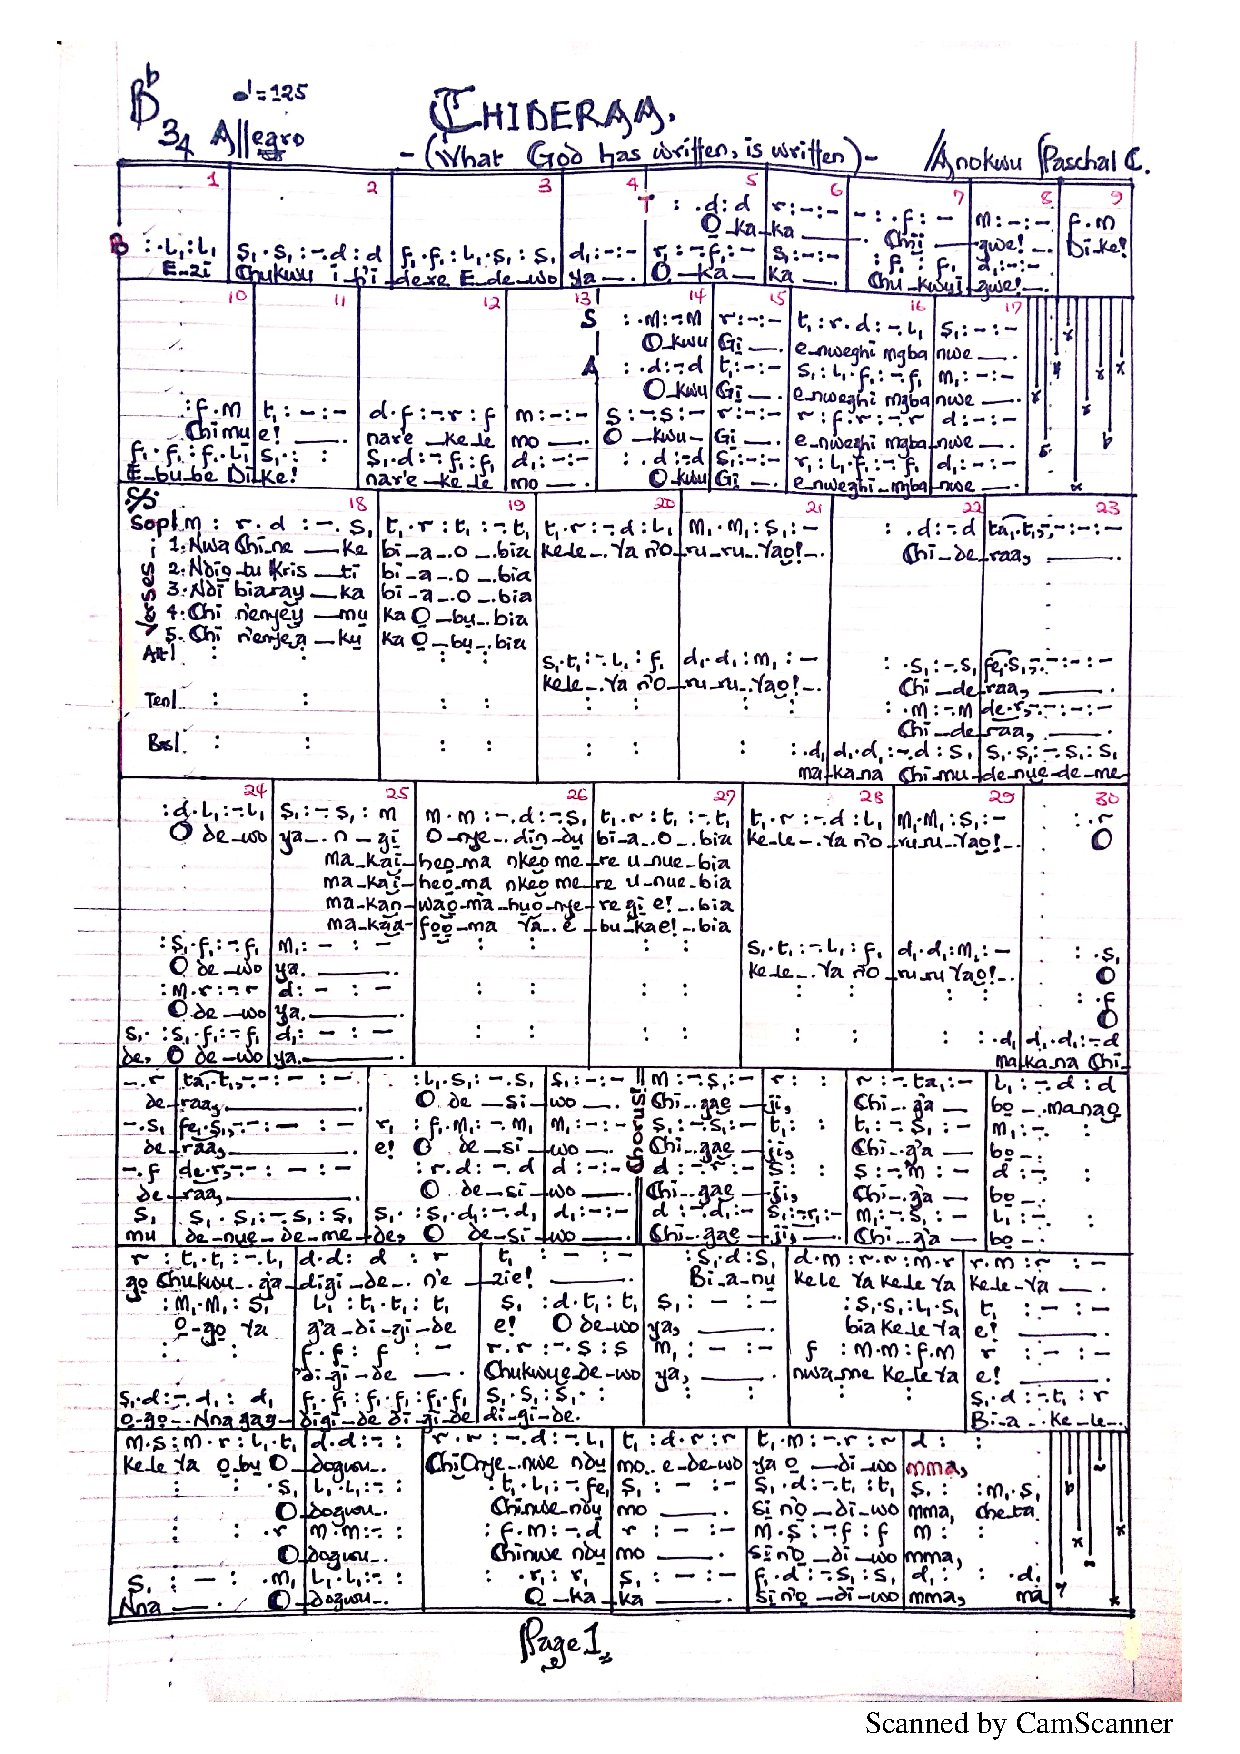 Bb
♩=125
CHIDERAA.
3/4 Allegro
-(What God has written, is written)-
Anokwu Paschal C.
1 2 3 4 5 6 7 8 9
T : .d:d r:-:- -:.f:- m:-:- f.m
O ka ka Chi gwe! Di ke!
B :.l₁:l₁ s₁.s₁:-.d:d f₁.f₁:l₁.s₁:s₁ d₁:-:- r₁:-.f₁:- s₁:-:- :f₁.f₁ d₁:-:-
E-zi Chukwu i-fi-dere E-de-wo ya O-ka ka Chu-kwuị-gwe!
10 11 12 13 14 15 16 17
S :.m:-.m r:-:- t₁:r.d:-.l₁ s₁:-:-
O-kwu Gi e-nweghi mgba nwe
A :.d:-.d t₁:-:- s₁:l₁.f₁:-.f₁ m₁:-:-
O kwu Gi e-nweghi mgba nwe
:f.m t₁:-:- d.f:-.r:f m:-:- s:-.s:- r:-:- r:f.r:-.r d:-:-
Chimu e! nare ke le mo O kwu Gi e-nweghi mgba nwe
f₁.f₁:f₁.l₁ s₁:: s₁.d:-.f₁:f₁ d₁:-:- :.d:-.d s₁:-:- r₁:l₁.f₁:-.f₁ d₁:-:-
E-bu-be Di Ke! nare ke le mo O kwu Gi e-nweghi mgba nwe
18 19 20 21 22 23
Sop m:r.d:-.s₁ t₁.r:t₁:-.t₁ t₁.r:-.d:l₁ m₁.m₁:s₁:- :.d:-.d ta₁.t₁,-:-:-
Verses
1. Nwa Chi-ne ke bi-a-o bia Ke le Ya n'O-ru-ru Yao! Chi-de-raa,
2. Ndiọ-tu Kris ti bi-a-o bia
3. Ndi biaray ka bi-a-o bia
4. Chi n'enyey mu ka O-bu-bia
5. Chi n'enyea ku ka O-bu-bia
Alt : : : : s₁.t₁:-.l₁:f₁ d₁.d₁:m₁:- :.s₁:-.s₁ fe₁.s₁,-:-:-
Ke le Ya n'O-ru-ru Yao! Chi-de-raa,
Ten : : : : : : :.m:-.m de.r,-:-:-
Chi-de-raa,
Bas : : : : : : : :.d₁ d₁.d₁:-.d:s₁ s₁.s₁:-.s₁:s₁
ma ka na Chi mu de-nye-de-me
24 25 26 27 28 29 30
:d.l₁:-.l₁ s₁:-.s₁:m m.m:-.d:-.s₁ t₁.r:t₁:-.t₁ t₁.r:-.d:l₁ m₁.m₁:s₁:- :.r
O de-wo ya n-gi O-nye din-du bi-a-o bia Ke-le Ya n'O ru.ru Yao! O
ma-kai-heo-ma nkeo me-re u-nue-bia
ma-kai-heo-ma nkeo me-re u-nue-bia
ma-kan-wao-ma-huo-nye-re gi e! bia
ma-kaa-foo-ma Ya e bu-kae! bia
:s₁.f₁:-.f₁ m₁:-:- : : : : s₁.t₁:-.l₁:f₁ d₁.d₁:m₁:- :.s₁
O de-wo ya. Ke le Ya n'O ru.ru Yao! O
:m.r:-.r d:-:- : : : : : : : : :.f
O de-wo ya. O
s₁.:s₁.f₁:-.f₁ d₁:-:- : : : : : : : :.d₁ d₁.d₁:-.d
de, O de-wo ya. ma ka na Chi
-.r ta₁.t₁,-:-:- :l₁.s₁:-.s₁ s₁:-:- m:-.s₁:- r:: r:-.ta₁:- l₁:-.d:d
de-raa, O de-si-wo Chi-gae ji, Chi-ga bo manao
Chorus
-.s₁ fe₁.s₁,-:-:- r₁:f₁.m₁:-.m₁ m₁:-:- s₁:-.s₁:- t₁:: t₁:-.s₁:- m₁:-:
de-raa, e! O de-si wo Chi-gae ji, Chi-ga bo
-.f de.r,-:-:- :r.d:-.d d:-:- d:-.r:- s:: s:-.m:- d:-:
de-raa, O de-si-wo Chi-gae ji, Chi-ga bo
s₁ s₁.s₁:-.s₁:s₁ s₁.:s₁.d₁:-.d₁ d₁:-:- d:-.d₁:- s₁:-.r₁:- m₁:-.s₁:- l₁:-:
mu de-nue-de-me-de, O de-si-wo Chi-gae ji, Chi-ga bo
r:t₁.t₁:-.l₁ d.d:d:r t₁:-:- :s₁.d:s₁ d.m:r.r:m.r r.m:r:-
go Chukwu ga digi-de n'e zie! Bi-a-nu Ke le Ya Ke le Ya Ke le-Ya
:m₁.m₁:s₁ l₁:t₁.t₁:t₁ s₁:d.t₁:t₁ s₁:-:- :s₁.s₁:l₁.s₁ t₁:-:-
o-go Ya ga-di-gi-de e! O de-wo ya, bia Ke le Ya e!
: : f.f:f:- r.r:-.s:s m₁:-:- f:m.m:f.m r:-:-
di-gi-de Chukwue de-wo ya, nwa me Ke le Ya e!
s₁.d:-.d₁:d₁ f₁.f₁:f₁.f₁:f₁.f₁ s₁.s₁:s₁: : : s₁.d:-.t₁:r
o-go Nna gag-digi-de di-gi-de di-gi-de. Bi-a Ke-le
m.s:m.r:l₁.t₁ d.d:-: r.r:-.d:-.l₁ t₁:d.r:r t₁.m:-.r:r d::
Ke le Ya o bu O dogwu. Chi Onye nwe ndu mo e-de-wo ya o di-wo mma,
: :.s₁ l₁.l₁:-: :t₁.l₁:-.fe₁ s₁:-:- s₁.d:-.t₁:t₁ s₁.: :m₁.s₁
O dogwu. Chinwe ndu mo si n'o di-wo mma, cheta
: :.r m.m:-: :f.m:-.d r:-:- m.s:-.f:f m::
O dogwu. Chinwe ndu mo si n'o di-wo mma,
s₁:-:.m₁ l₁.l₁:-: :.r₁:r₁ s₁:-:- f₁.d:-.s₁:s₁ d₁.: :.d₁
Nna O dogwu. O-ka ka si n'o di-wo mma, ma
Page 1
Scanned by CamScanner